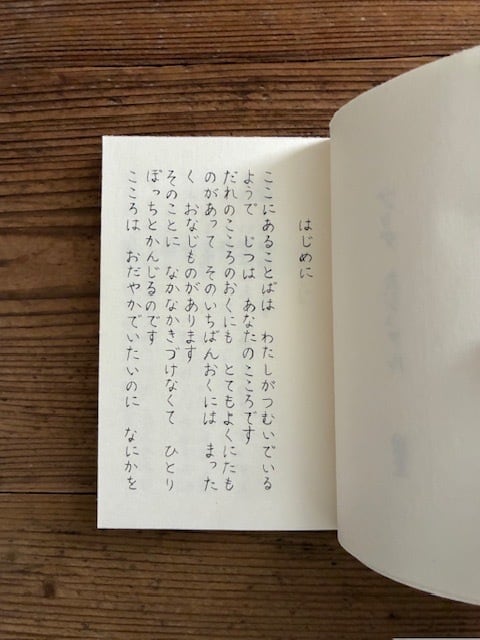 はじめに
ここにあることばは　わたしがつむいでいる
ようで　じつは　あなたのこころです
だれのこころのおくにも　とてもよくにたも
のがあって　そのいちばんおくには　まった
く　おなじものがあります
そのことに　なかなかきづけなくて　ひとり
ぼっちとかんじるのです
こころは　おだやかでいたいのに　なにかを